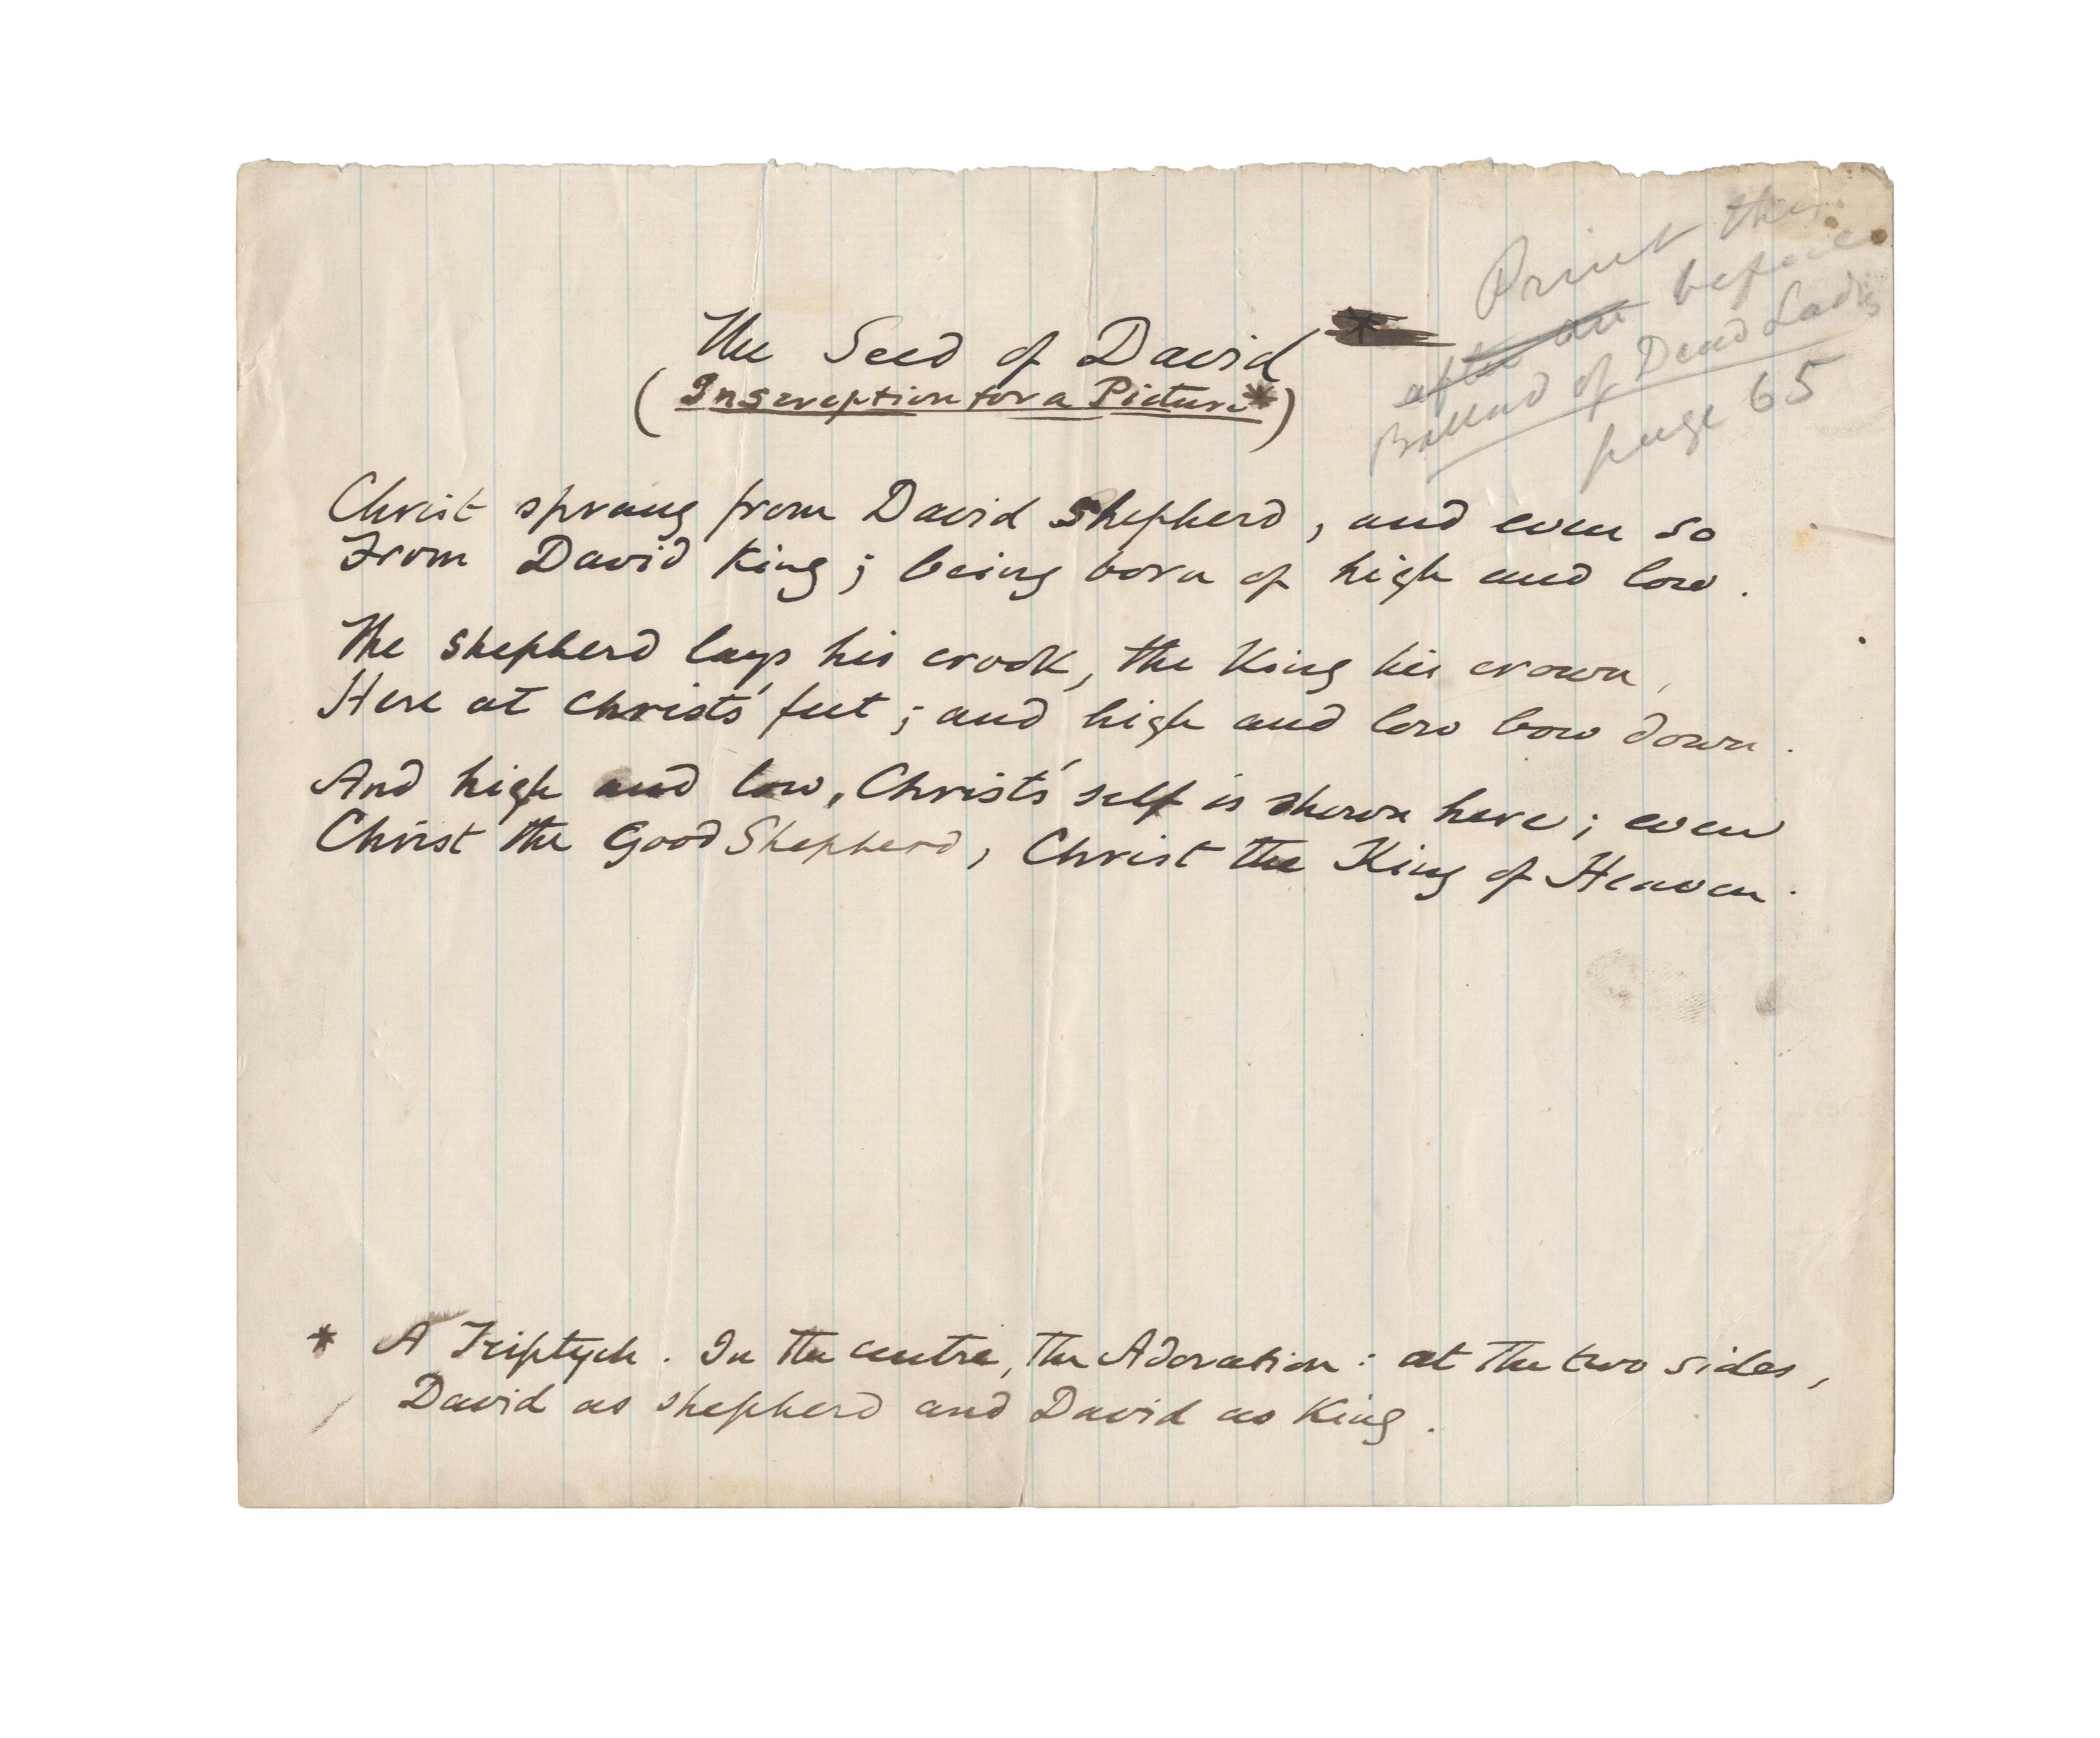 Print this
after all before
Ballad of Dead Ladies
page 65
The Seed of David *
(Inscription for a Picture*)
Christ sprang from David Shepherd, and even so
From David King; being born of high and low.
The Shepherd lays his crook, the King his crown,
Here at Christ's feet; and high and low bow down.
And high and low, Christ's self is shown here; even
Christ the Good Shepherd, Christ the King of Heaven.
* A Triptych. In the centre, the Adoration: at the two sides,
David as shepherd and David as King.